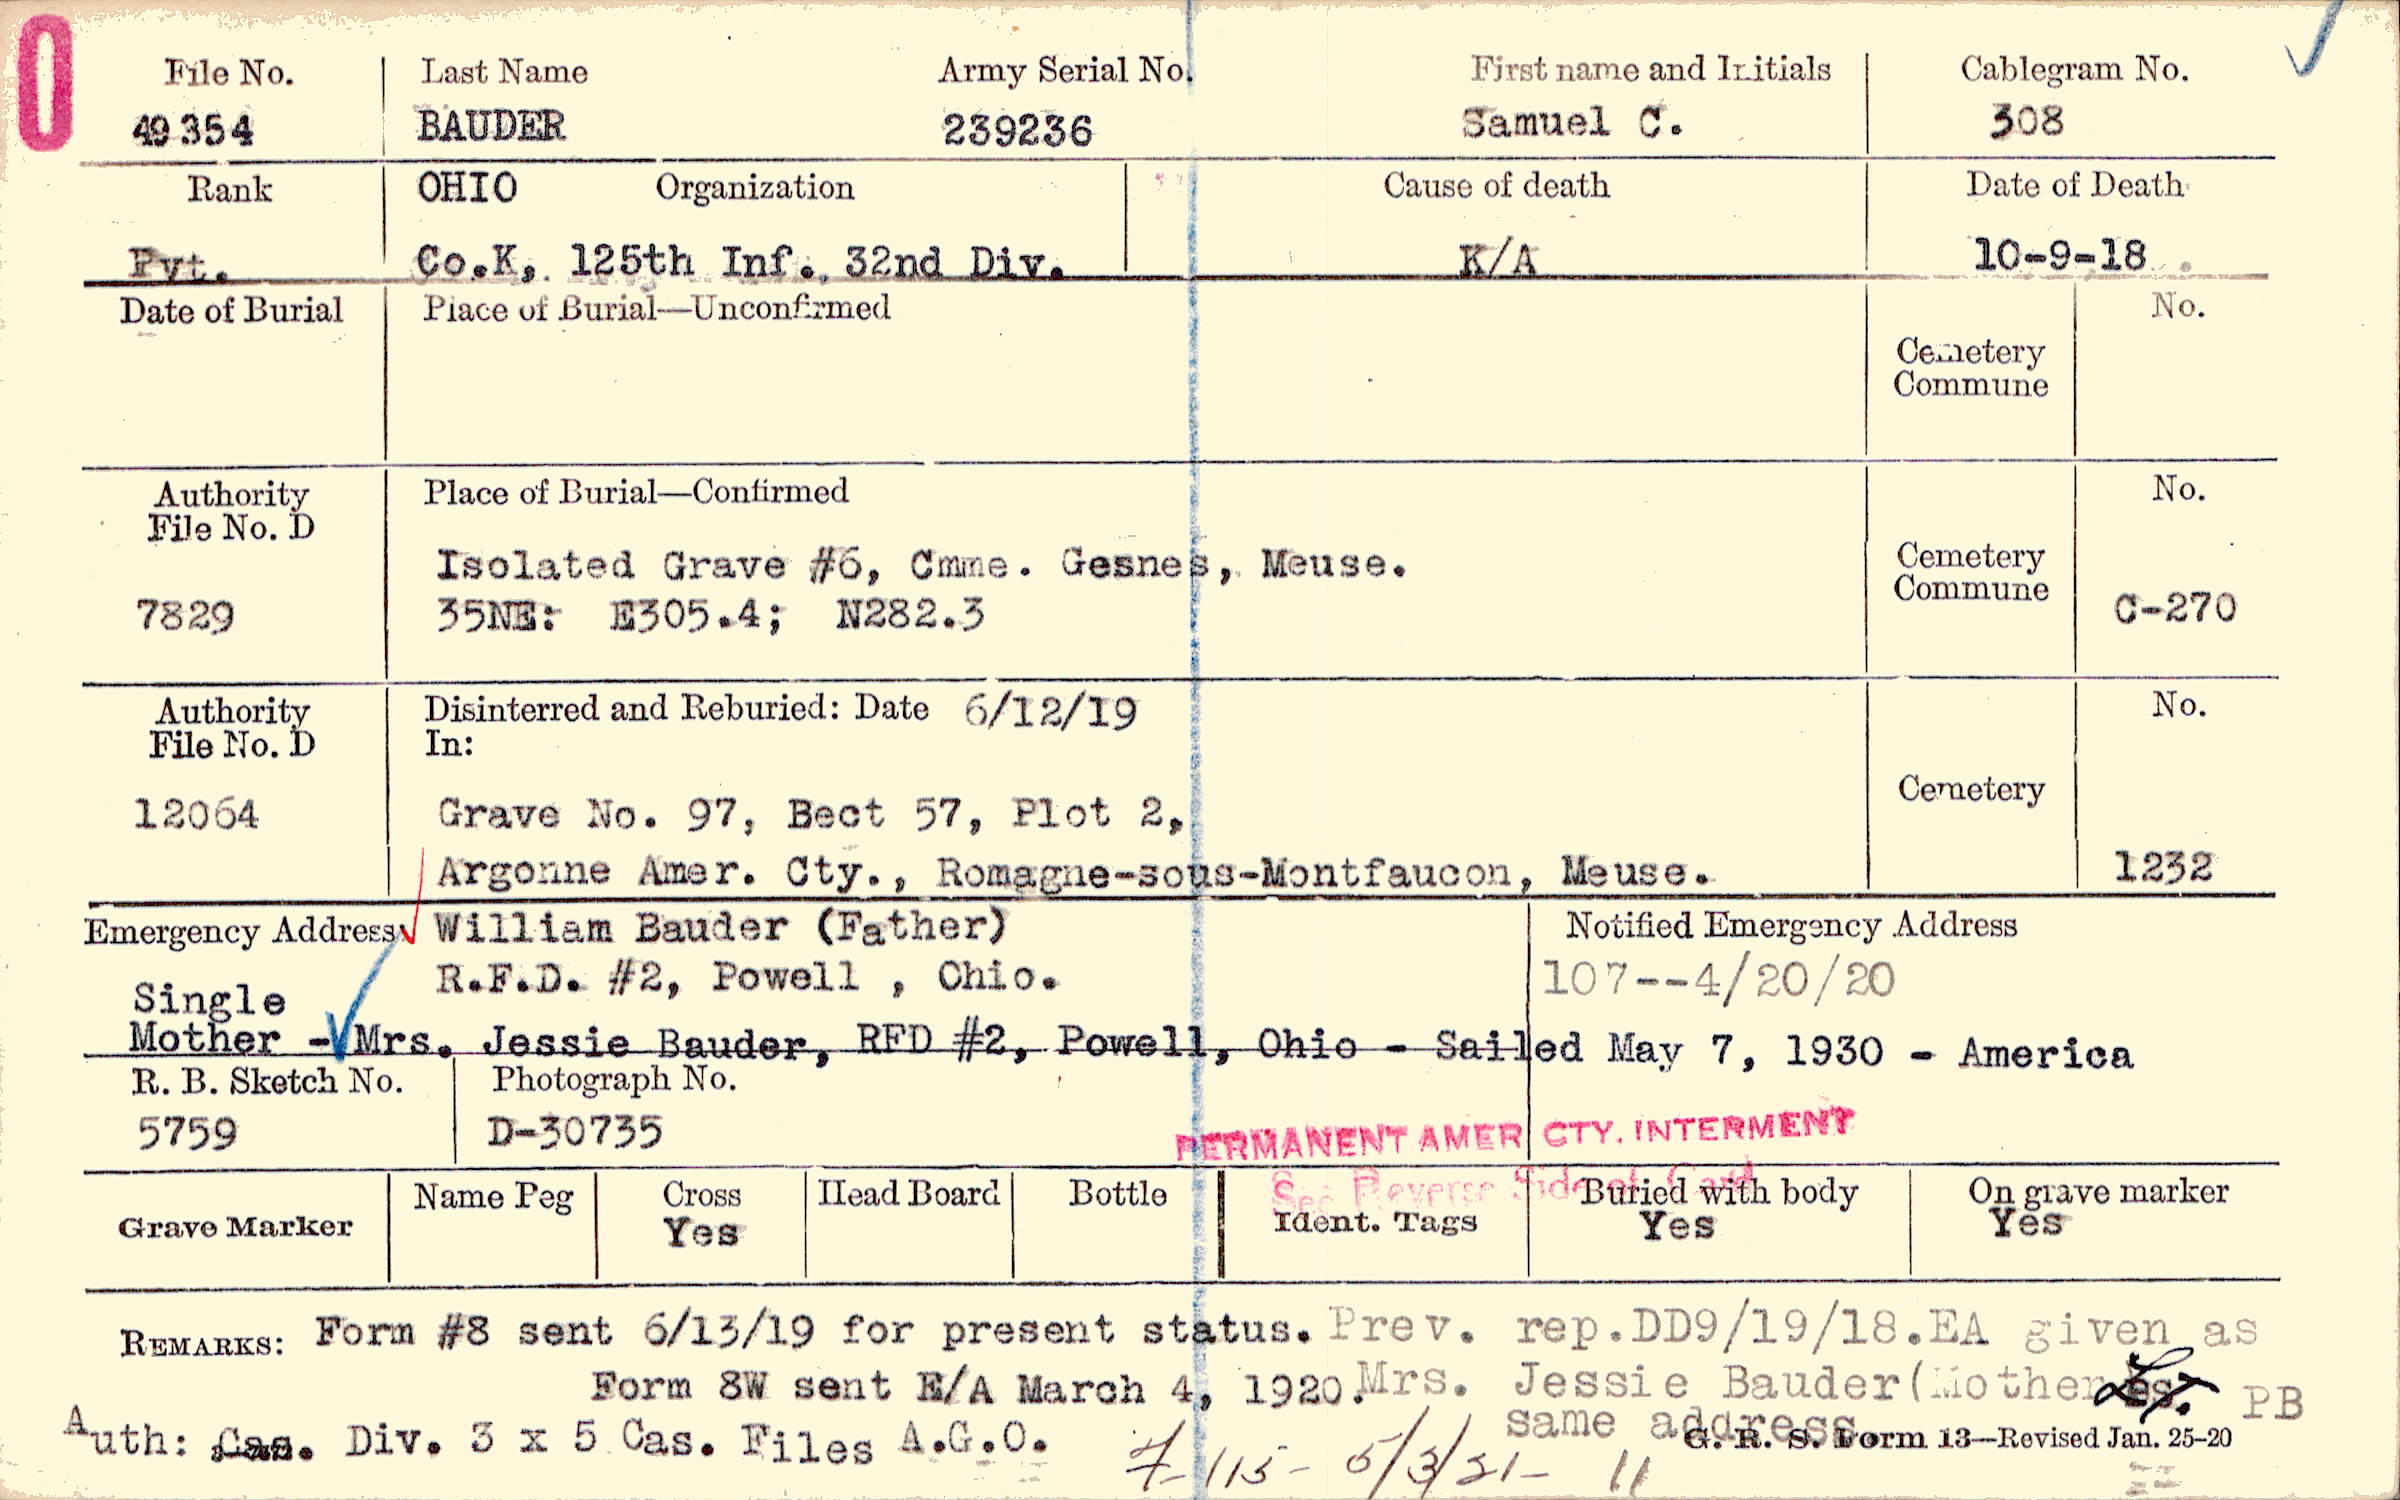 0
File No. Last Name Army Serial No. First name and Initials Cablegram No.
49354 BAUDER 239236 Samuel C. 308
Rank OHIO Organization Cause of death Date of Death
Pvt. Co.K, 125th Inf., 32nd Div. K/A 10-9-18
Date of Burial Place of Burial—Unconfirmed No.
Cemetery
Commune
Authority Place of Burial—Confirmed No.
File No. D
Isolated Grave #6, Cmme. Gesnes, Meuse. Cemetery
7829 35NE: E305.4; N282.3 Commune C-270
Authority Disinterred and Reburied: Date 6/12/19 No.
File No. D In:
12064 Grave No. 97, Bect 57, Plot 2, Cemetery
Argonne Amer. Cty., Romagne-sous-Montfaucon, Meuse. 1232
Emergency Address William Bauder (Father) Notified Emergency Address
R.F.D. #2, Powell , Ohio. 107--4/20/20
Single
Mother - Mrs. Jessie Bauder, RFD #2, Powell, Ohio - Sailed May 7, 1930 - America
R. B. Sketch No. Photograph No.
5759 D-30735
PERMANENT AMER CTY. INTERMENT
See Reverse Side of Card
Grave Marker Name Peg Cross Head Board Bottle Ident. Tags Buried with body On grave marker
Yes Yes Yes
REMARKS: Form #8 sent 6/13/19 for present status. Prev. rep.DD9/19/18.EA given as
Form 8W sent E/A March 4, 1920. Mrs. Jessie Bauder(Mother PB
same address
Auth: Cas. Div. 3 x 5 Cas. Files A.G.O.
G. R. S. Form 13—Revised Jan. 25-20
115- 5/3/21- 11